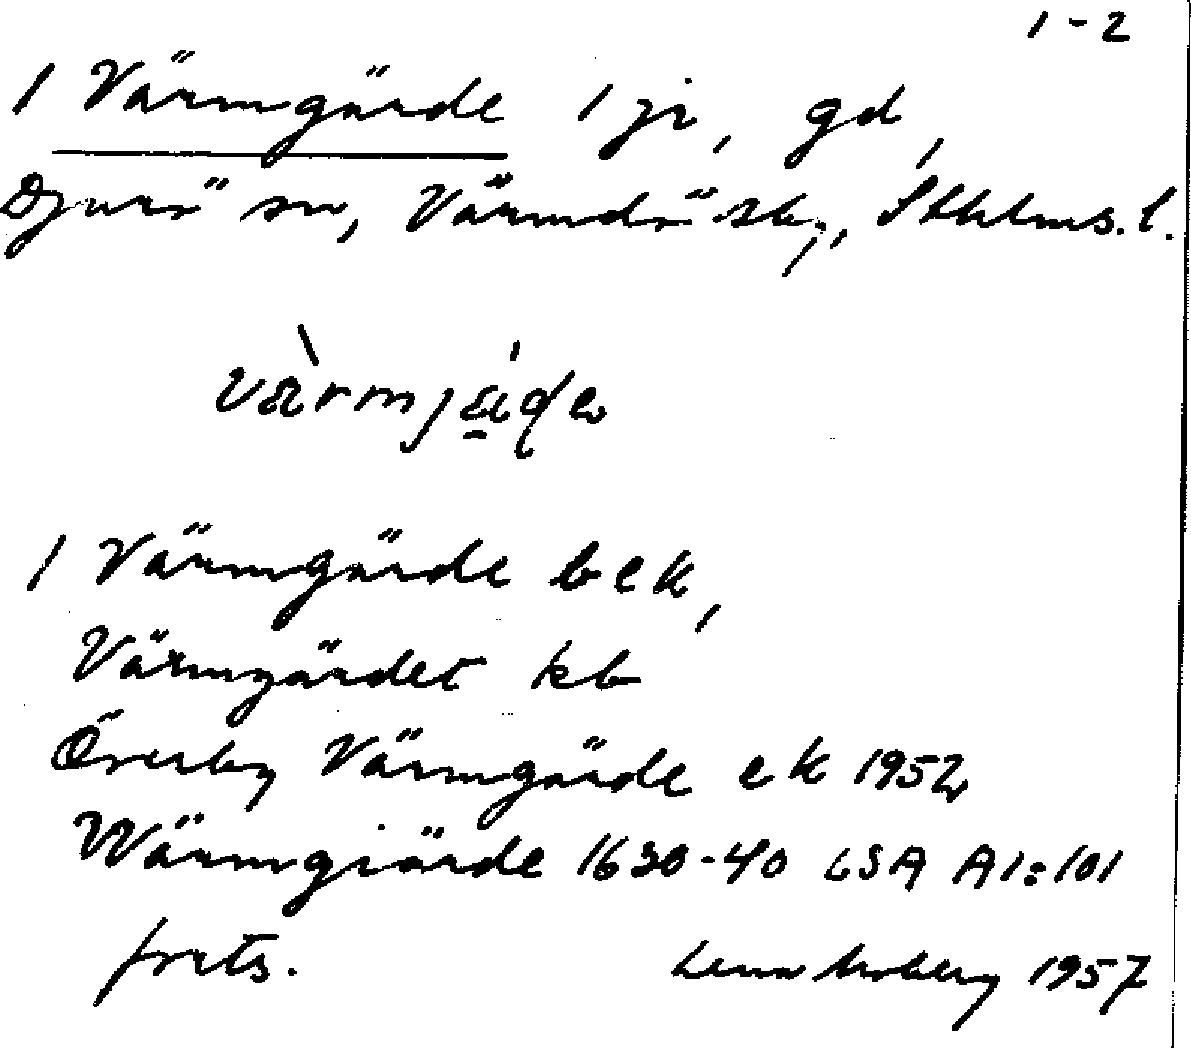 1-2
1 Värmgärde 1 jr, gd,
Djurö sn, Värmdö skg, Sthlms. l.
värmjäḍe
1 Värmgärde bek,
Värmgärdet kb
Överby Värmgärde ek 1952
Wärmgiärde 1630-40 LSA A1:101
forts. 1957